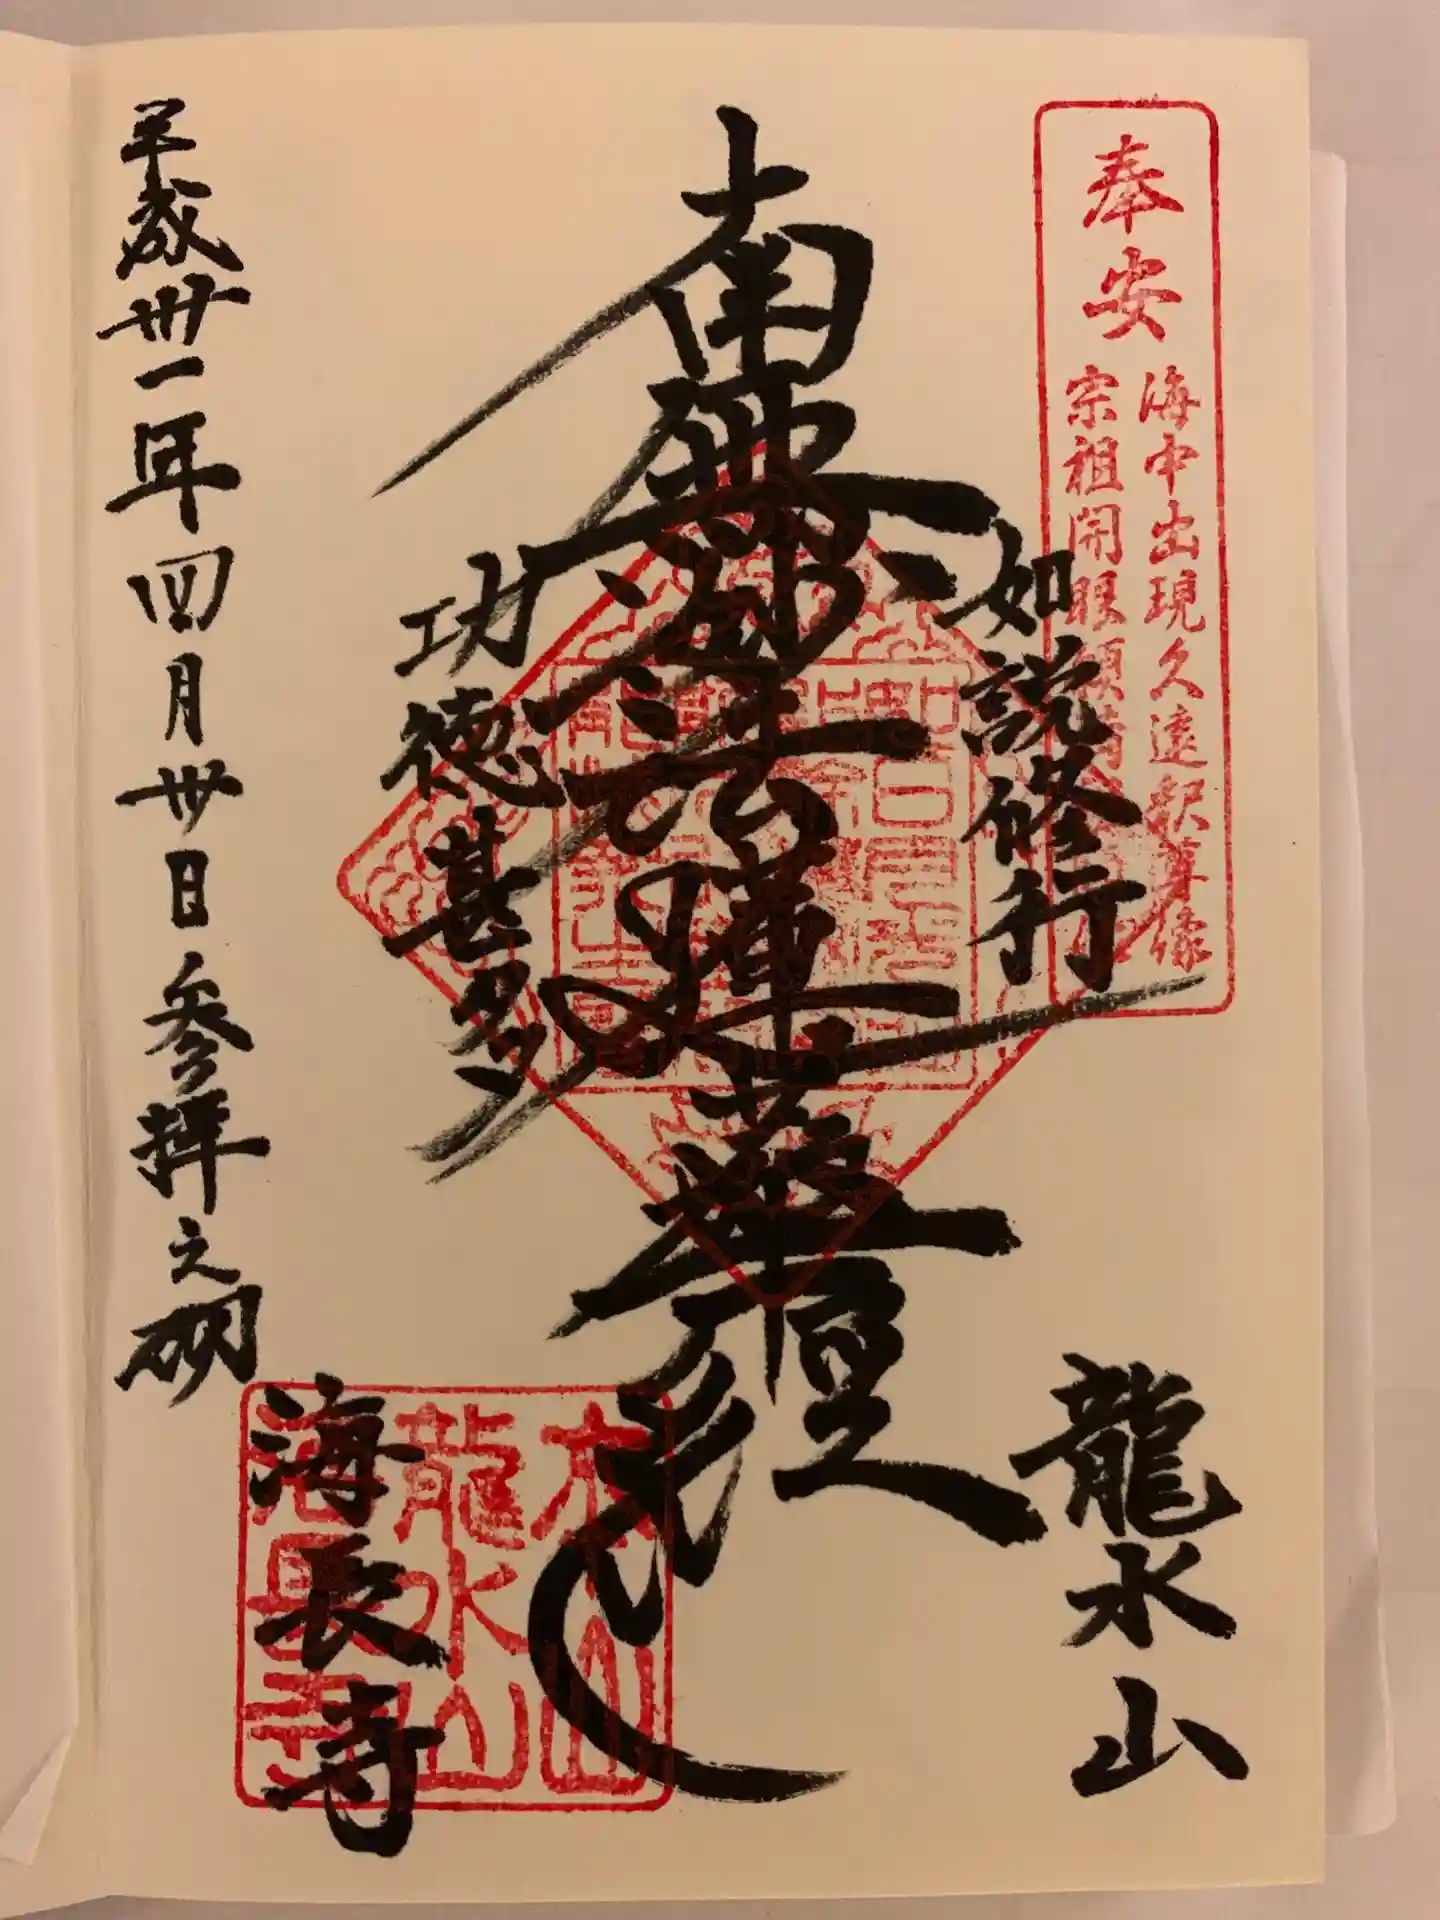 奉安
海中出現久遠釈尊像
宗祖開眼願満
如説修行
龍水山
南無妙法蓮華経
功徳甚多
本山
龍水山
海長寺
海長寺
平成卅一年四月卅日参拝之砌